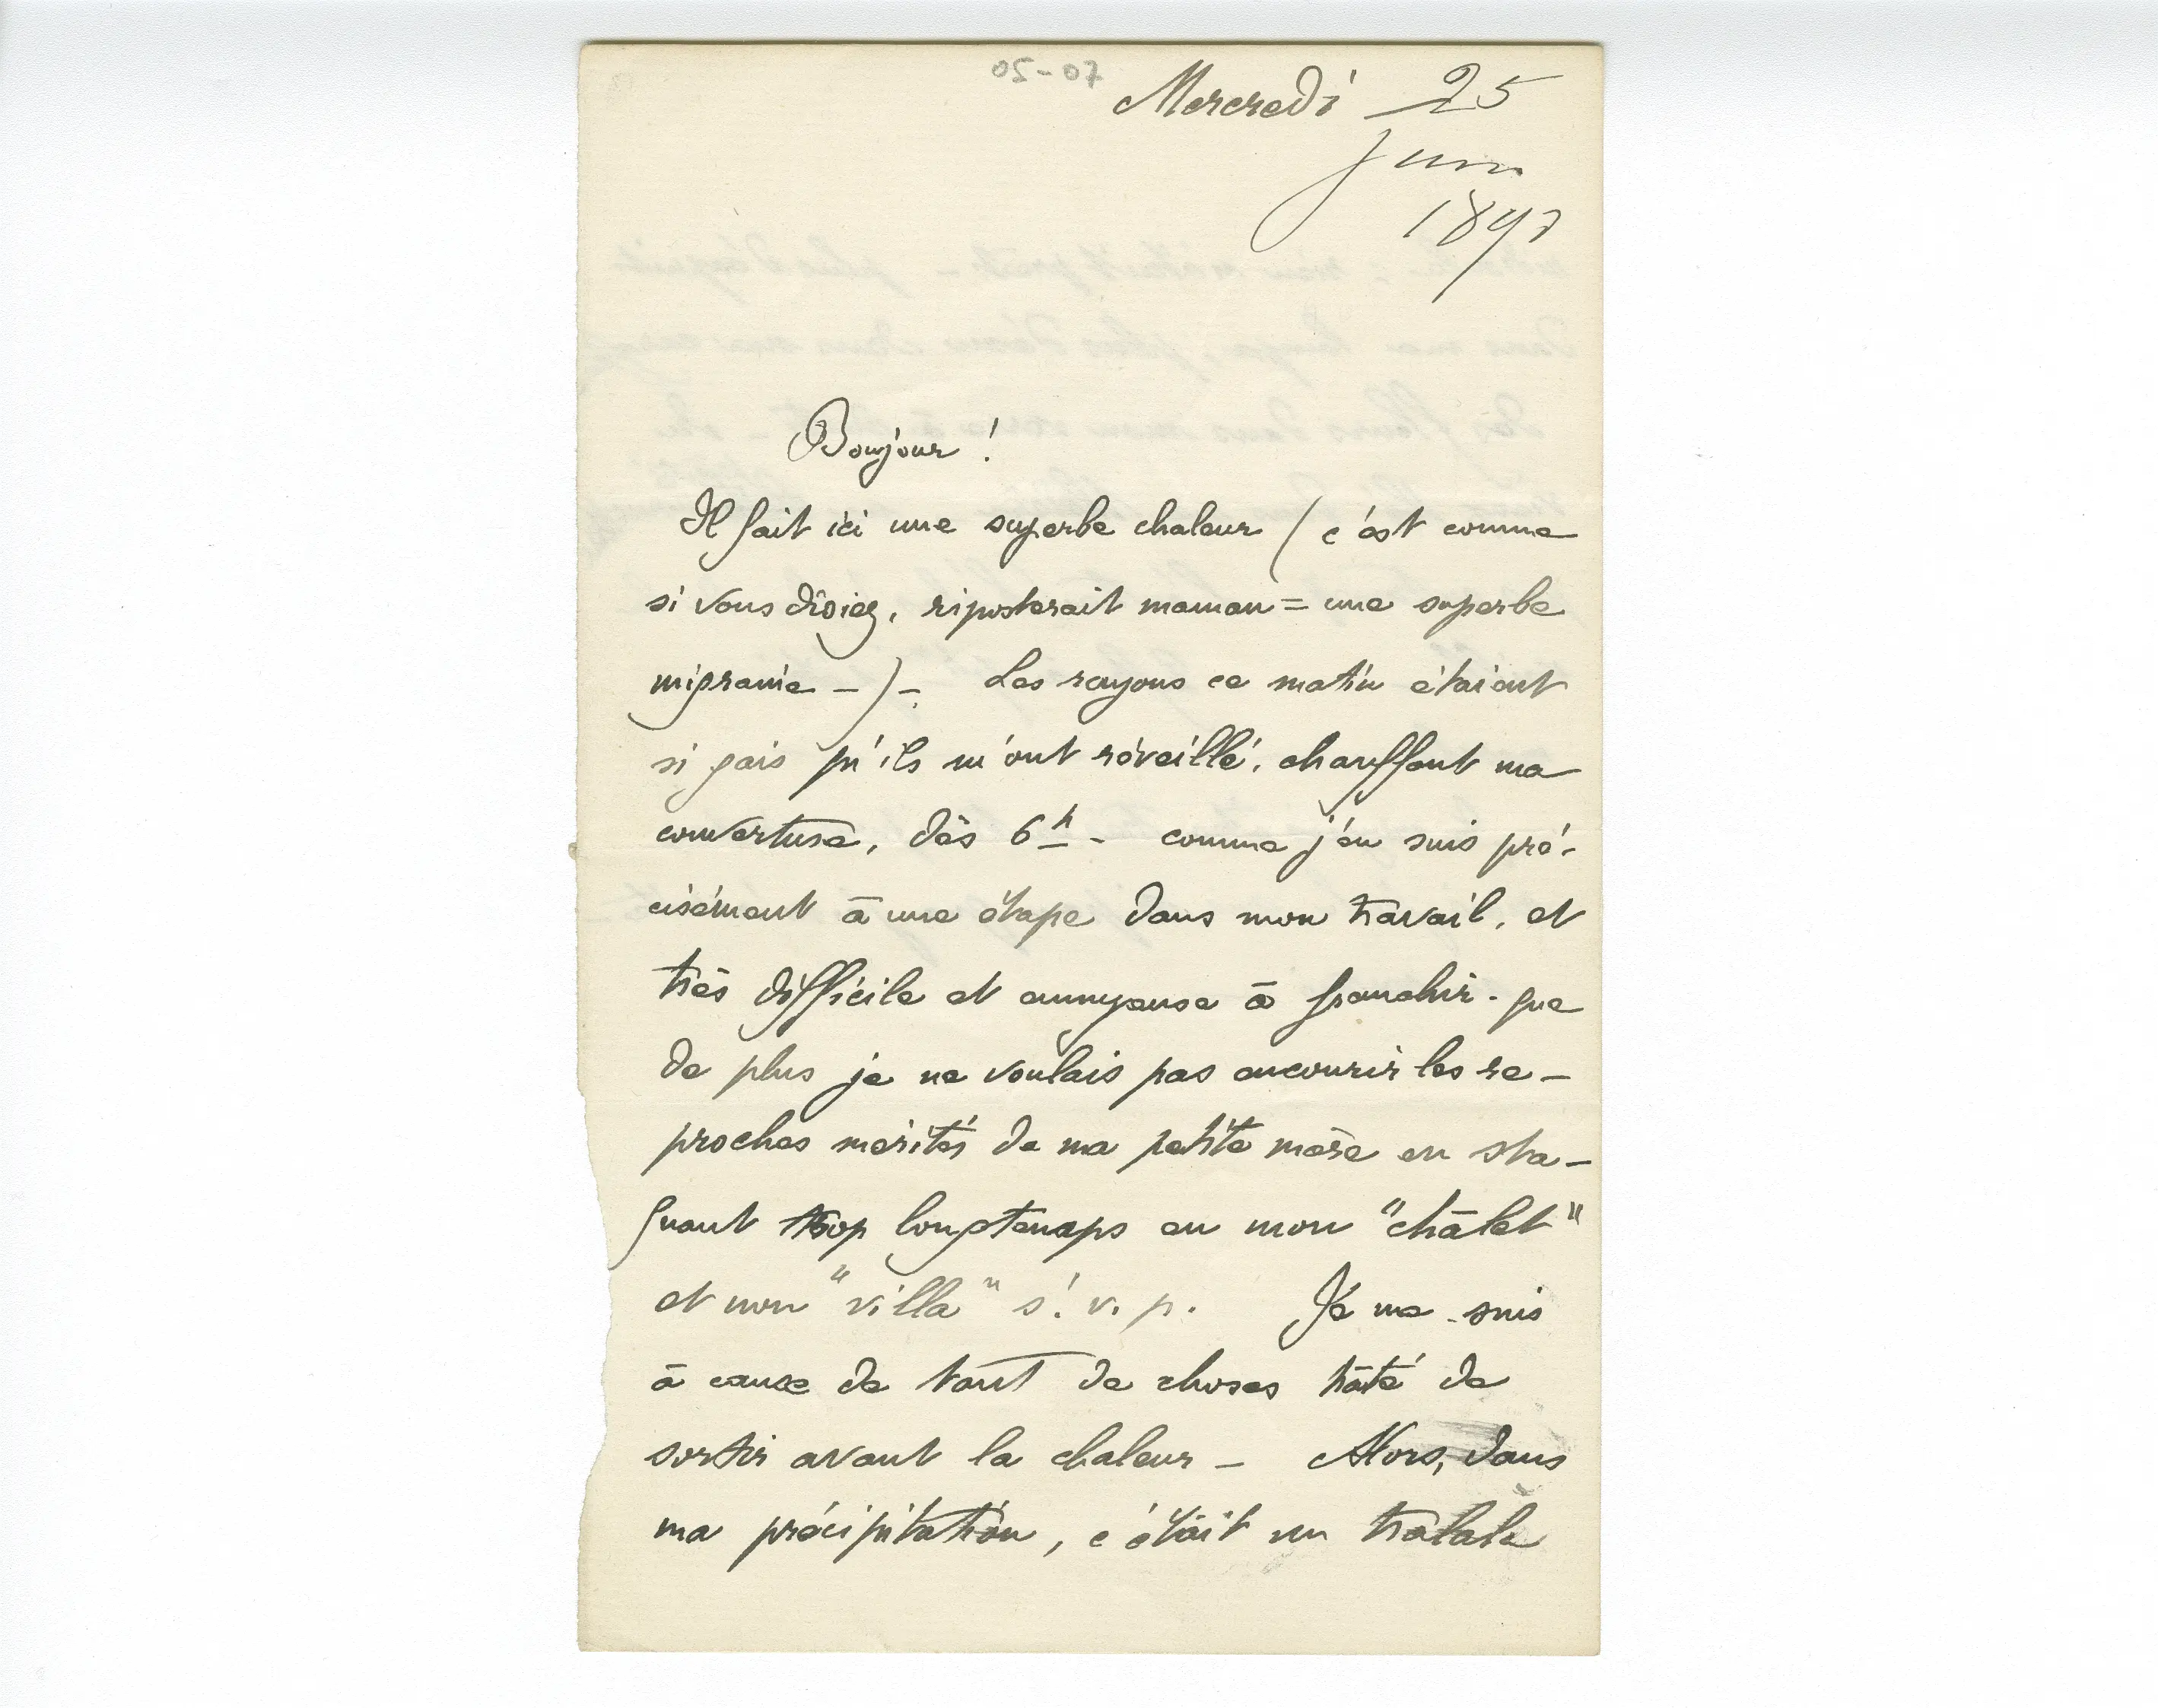 05-07
Mercredi 25
Juin
189
Bonjour !
Il fait ici une superbe chaleur (c'est comme
si vous disiez, riposterait maman = une superbe
migraine -)-. Les rayons ce matin étaient
si gais qu'ils m'ont réveillé, chauffant ma
couverture, dès 6h - comme j'en suis pré-
cisément à une étape dans mon travail, et
très difficile et ennuyeuse à franchir - que
de plus je ne voulais pas encourir les re-
proches mérités de ma petite mère en sta-
guant trop longtemps en mon "châlet"
et non "villa" s. v. p. Je me suis
à cause de tant de choses hâté de
sortir avant la chaleur - Alors, dans
ma précipitation, c'était un tralala